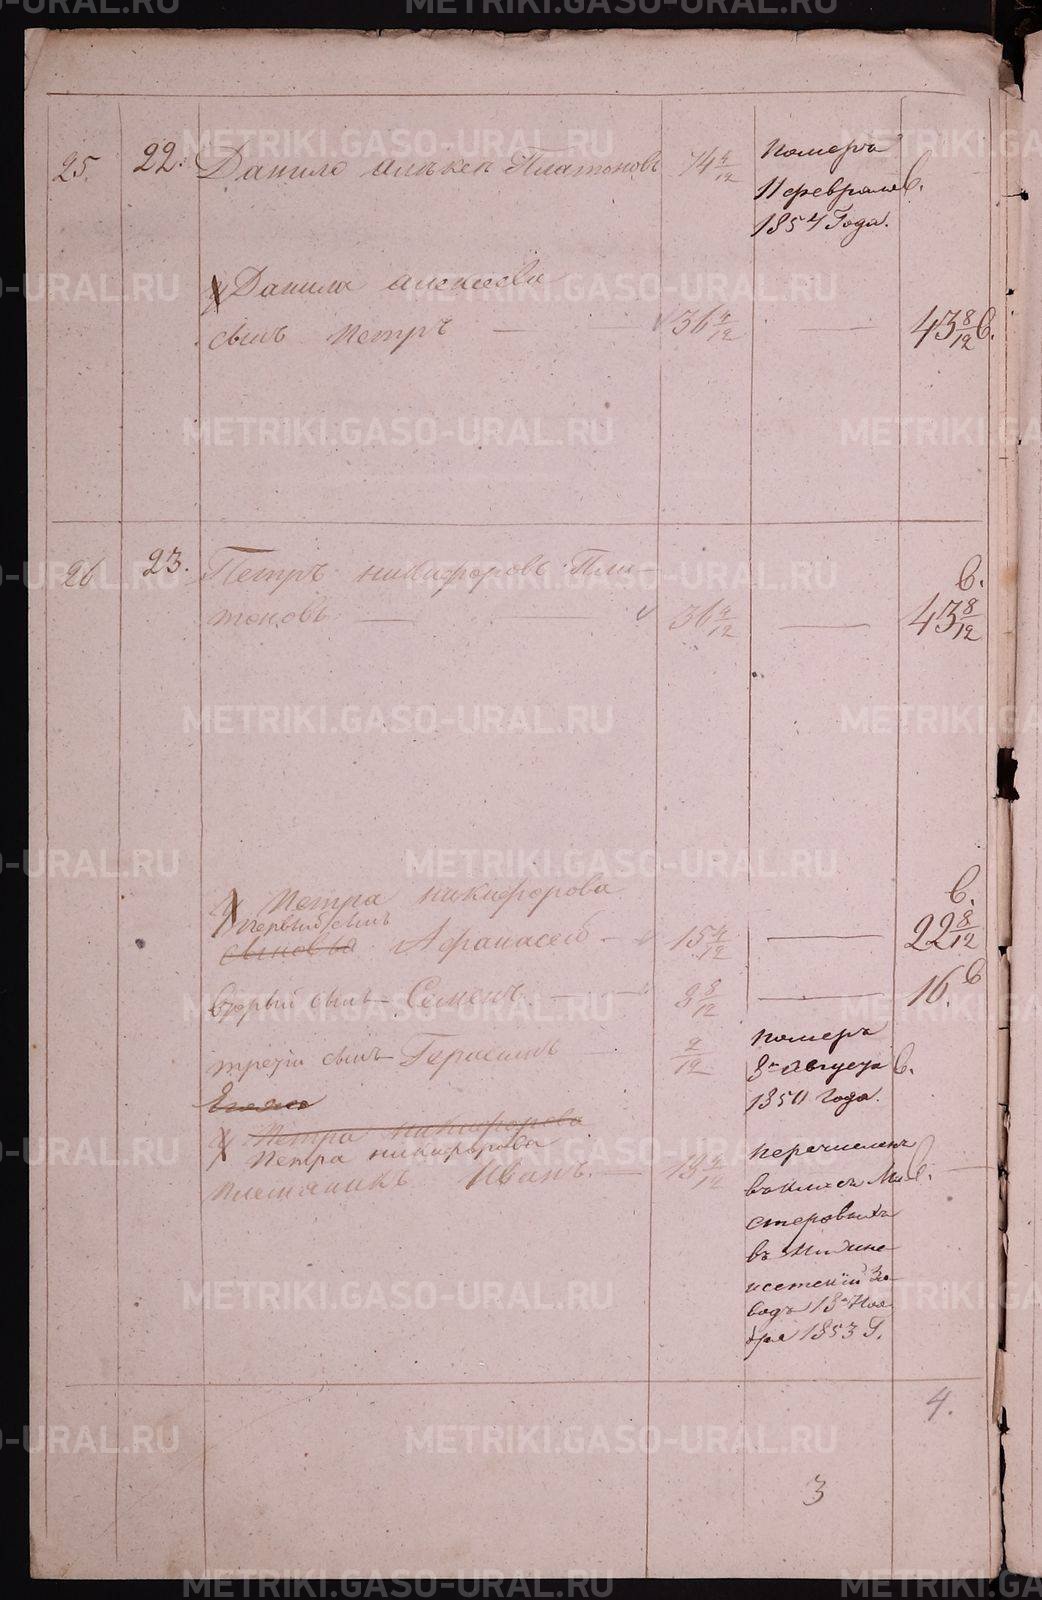 25. 22. Данило Алексеев Платоновъ 74 4/12 Померъ
11 февраля в.
1854 Года.
у Данила Алексеева
сынъ Петръ — 36 4/12 — 43 8/12 в.
26 23. Петръ Никифоровъ Пла-
тоновъ — 36 4/12 — в. 43 8/12
у Петра Никифорова
первый сынъ
сыновья Афанасей — 15 4/12 — в. 22 8/12
вторый сынъ Семенъ — 8 8/12 — 16. в
третiй сынъ Герасимъ — 2/12 Померъ
8го Августа в.
1850 года.
у Петра Никифорова
Петра Никифорова
племянникъ Иванъ. — 18 4/12 Перечисленъ
въ классъ Ма- в.
стеровыхъ
въ Нижне
исетскiй За-
водъ 13го Ноя-
бря 1853 Г.
4.
3
METRIKI.GASO-URAL.RU